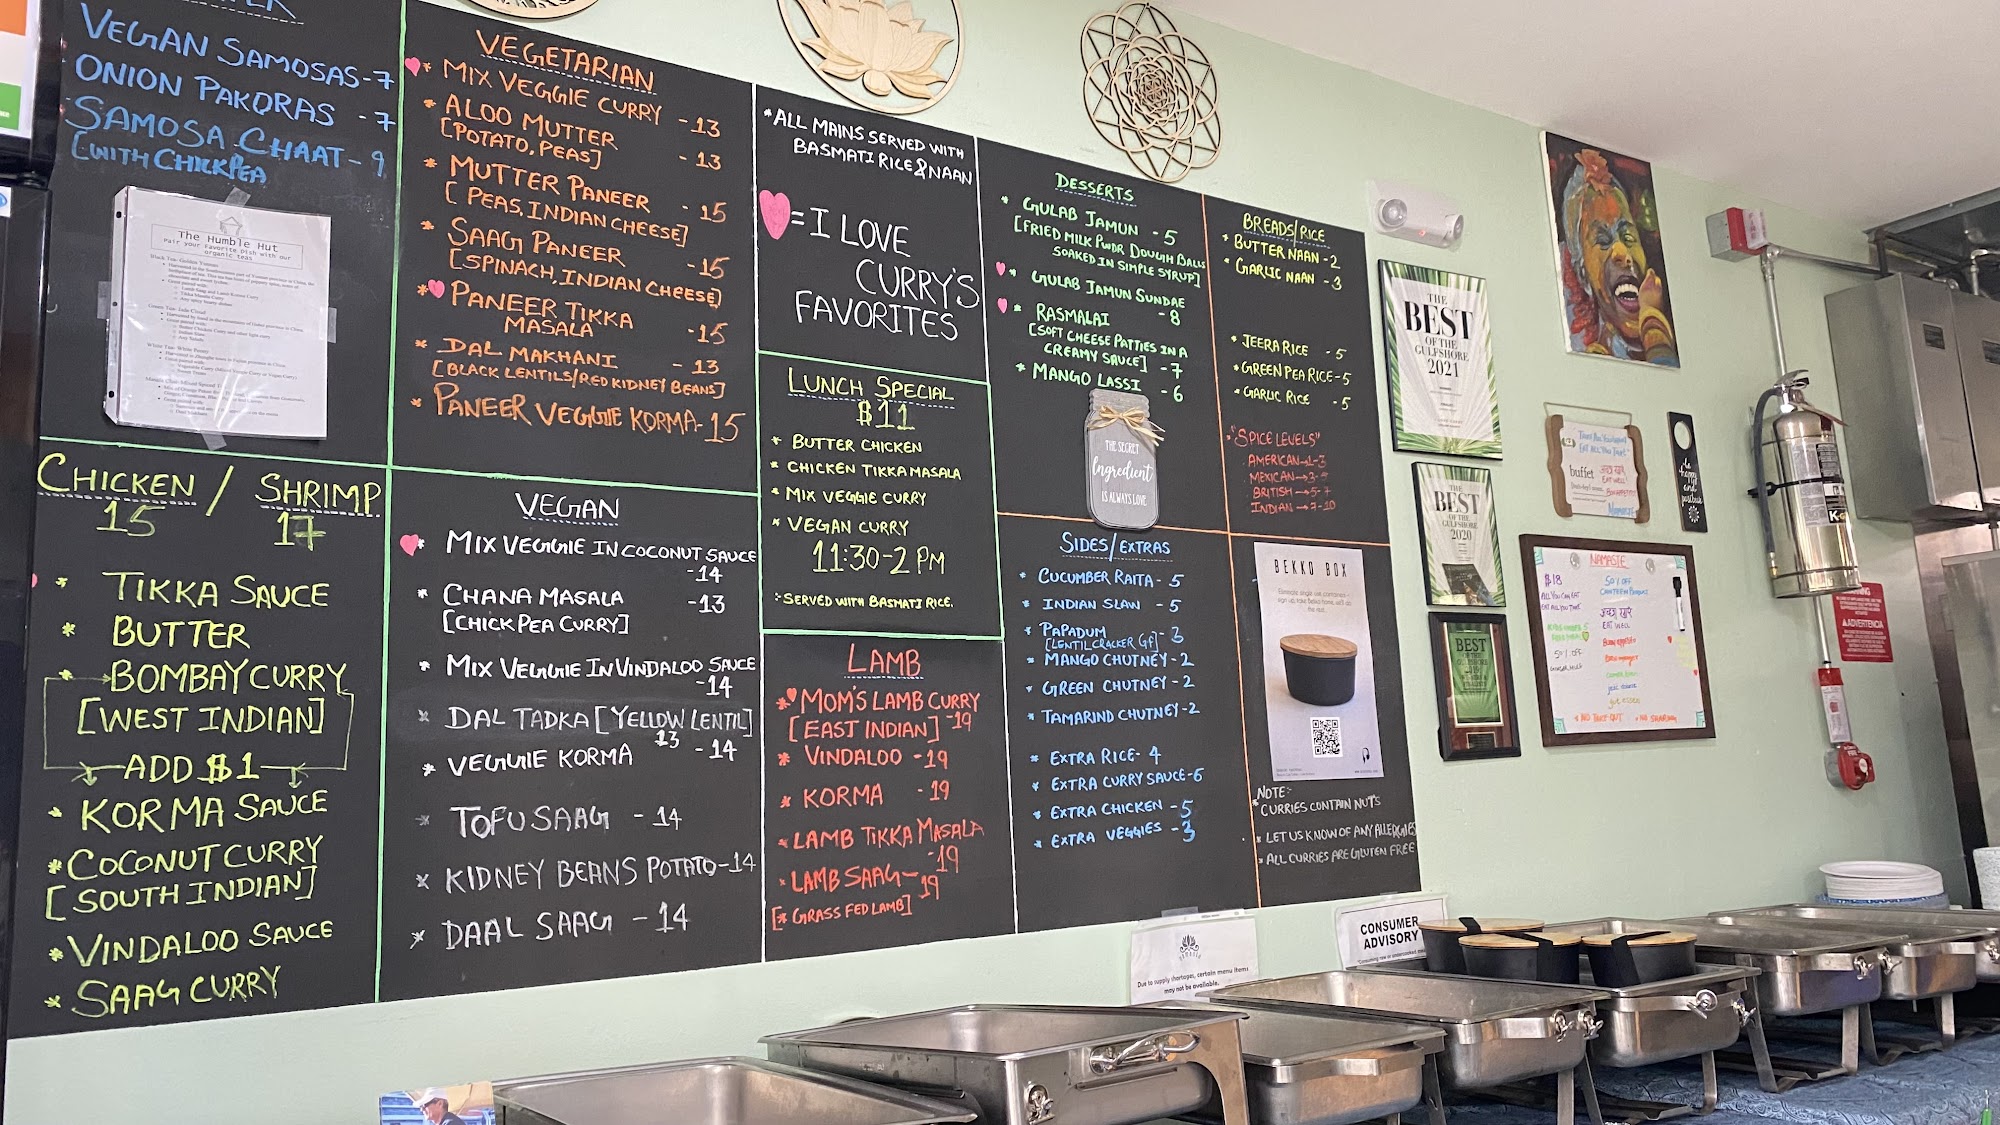 VEGAN SAMOSAS-7
ONION PAKORAS -7
SAMOSA CHAAT-9
[WITH CHICKPEA
The Humble Hut
Pair your Favorite Dish with our
organic teas
CHICKEN / SHRIMP
15 17
* TIKKA SAUCE
* BUTTER
* BOMBAY CURRY
[WEST INDIAN]
ADD $1
* KORMA SAUCE
* COCONUT CURRY
[SOUTH INDIAN]
* VINDALOO SAUCE
* SAAG CURRY
VEGETARIAN
* MIX VEGGIE CURRY -13
* ALOO MUTTER
[POTATO, PEAS] -13
* MUTTER PANEER -15
[PEAS, INDIAN CHEESE]
* SAAG PANEER -15
[SPINACH, INDIAN CHEESE]
* PANEER TIKKA
MASALA -15
* DAL MAKHANI -13
[BLACK LENTILS/RED KIDNEY BEANS]
* PANEER VEGGIE KORMA-15
VEGAN
* MIX VEGGIE IN COCONUT SAUCE
-14
* CHANA MASALA -13
[CHICK PEA CURRY]
* MIX VEGGIE IN VINDALOO SAUCE
-14
* DAL TADKA [YELLOW LENTIL]
13
* VEGGIE KORMA -14
* TOFU SAAG -14
* KIDNEY BEANS POTATO-14
* DAAL SAAG -14
*ALL MAINS SERVED WITH
BASMATI RICE & NAAN
=I LOVE
CURRY'S
FAVORITES
LUNCH SPECIAL
$11
* BUTTER CHICKEN
* CHICKEN TIKKA MASALA
* MIX VEGGIE CURRY
* VEGAN CURRY
11:30-2 PM
:-SERVED WITH BASMATI RICE.
LAMB
* MOM'S LAMB CURRY
[EAST INDIAN] -19
* VINDALOO -19
* KORMA -19
* LAMB TIKKA MASALA
-19
* LAMB SAAG-19
[* GRASS FED LAMB]
DESSERTS
* GULAB JAMUN -5
[FRIED MILK PWDR DOUGH BALLS
SOAKED IN SIMPLE SYRUP]
* GULAB JAMUN SUNDAE
-8
* RASMALAI
[SOFT CHEESE PATTIES IN A
CREAMY SAUCE] -7
* MANGO LASSI -6
THE SECRET
Ingredient
IS ALWAYS LOVE
SIDES/EXTRAS
* CUCUMBER RAITA-5
* INDIAN SLAW -5
* PAPADUM
[LENTIL CRACKER GF]-3
* MANGO CHUTNEY-2
* GREEN CHUTNEY-2
* TAMARIND CHUTNEY-2
* EXTRA RICE-4
* EXTRA CURRY SAUCE-6
* EXTRA CHICKEN -5
* EXTRA VEGGIES -3
BREADS/RICE
* BUTTER NAAN-2
* GARLIC NAAN -3
* JEERA RICE -5
* GREEN PEA RICE-5
* GARLIC RICE -5
"SPICE LEVELS"
AMERICAN→1-3
MEXICAN→3-5
BRITISH→5-7
INDIAN→7-10
BEKKO BOX
NOTE:-
* CURRIES CONTAIN NUTS
* LET US KNOW OF ANY ALLERGIES
* ALL CURRIES ARE GLUTEN FREE
THE
BEST
OF THE
GULFSHORE
2021
THE
BEST
OF THE
GULFSHORE
2020
BEST
buffet
EAT WELL
NAMASTE
be
happy
and
NAMASTE
$18
ALL YOU CAN EAT
50% OFF
EAT WELL
* NO TAKE OUT * NO SHARING
WARNING
ADVERTENCIA
Due to supply shortages, certain menu items
may not be available.
CONSUMER
ADVISORY